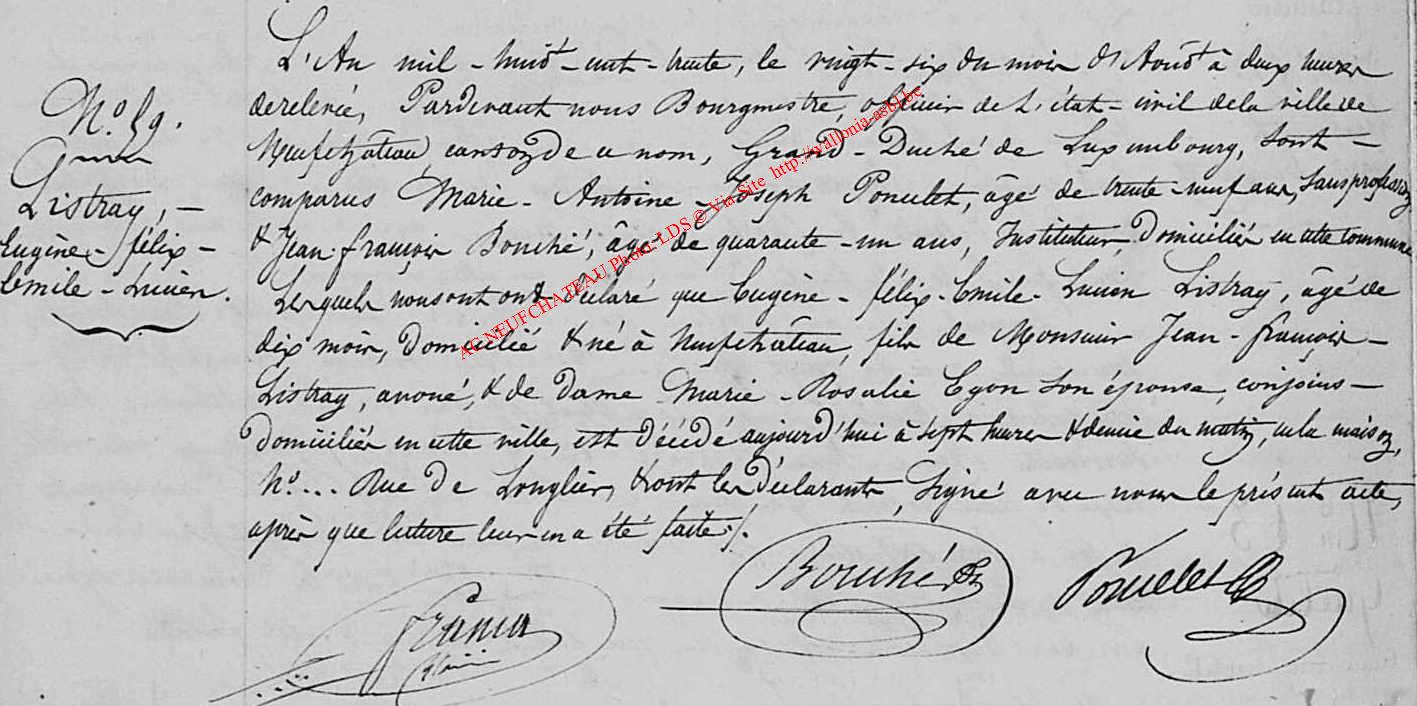 L'An mil-huit-cent-trente, le vingt-six du mois d'Août à deux heures
de relevée, Pardevant nous Bourgmestre, officier de l'état-civil de la ville de
Neufchâteau, canton de ce nom, Grand-Duché de Luxembourg, sont-
comparus Marie-Antoine-Joseph Poncelet, âgé de trente-neuf ans, sans profession
& Jean-françois Bouché, âgé de quarante-un ans, Instituteur, Domiciliés en cette commune
Lesquels nous ont déclaré que Eugène-félix-Emile-Lucien Listray, âgé de
dix mois, Domicilié & né à Neufchâteau, fils de Monsieur Jean-françois-
Listray, avoué, & de Dame Marie-Rosalie Cyon son épouse, conjoins-
Domiciliés en cette ville, est Décédé aujourd'hui à sept heures & demie du matin, en la maison,
No... Rue de Longlier, & ont les Déclarants, Signé avec nous le présent acte,
après que lecture leur en a été faite ./.
No. 59.
Listray,-
Eugène-félix-
Emile-Lucien.
Bouché
Poncelet
AC NEUFCHATEAU Photo-LDS @ Via Site http://wallonia-asbl.be